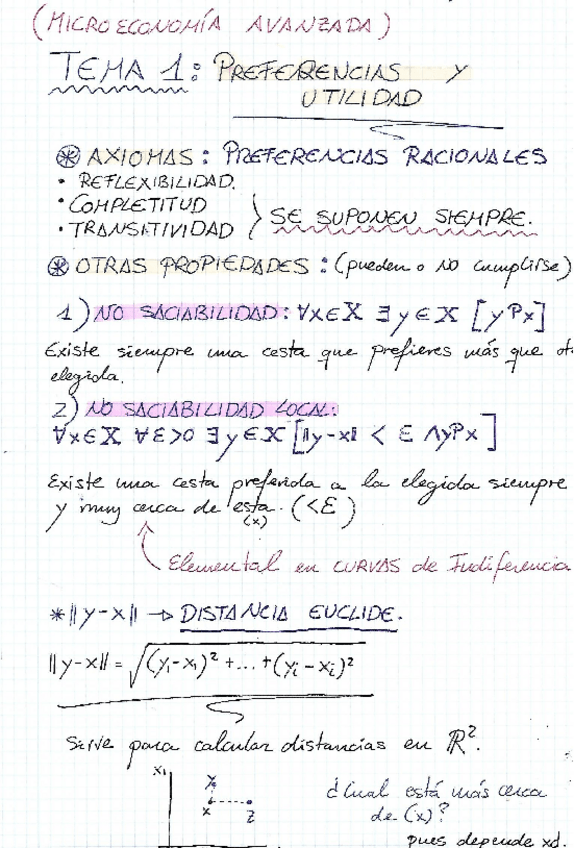 (MICROECONOMÍA AVANZADA)
TEMA 1: PREFERENCIAS Y
UTILIDAD
⊛ AXIOMAS: PREFERENCIAS RACIONALES
• REFLEXIBILIDAD.
• COMPLETITUD
• TRANSITIVIDAD } SE SUPONEN SIEMPRE.
⊛ OTRAS PROPIEDADES: (pueden o no cumplirse)
1) NO SACIABILIDAD: ∀x∈X ∃y∈X [yPx]
Existe siempre una cesta que prefieres más que ot
elegida.
2) NO SACIABILIDAD LOCAL:
∀x∈X ∀ε>0 ∃y∈X [||y-x|| < ε ∧ yPx]
Existe una cesta preferida a la elegida siempre
y muy cerca de esta. (<ε)
(x)
Elemental en CURVAS de Indiferencia
* ||y-x|| → DISTANCIA EUCLIDE.
||y-x|| = √(y₁-x₁)² + ... + (yᵢ-xᵢ)²
Sirve para calcular distancias en ℝ².
x₁
y
x
z
¿Cual está más cerca
de (x)?
pues depende xd.